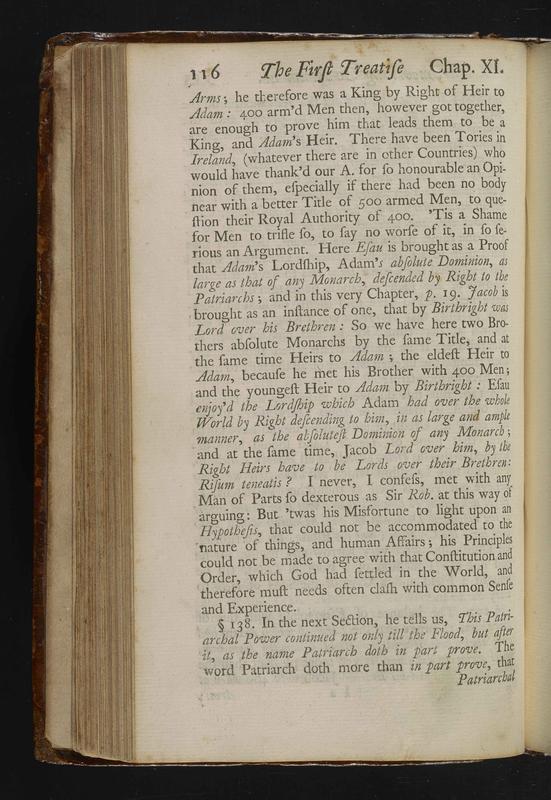 116 The Firſt Treatiſe Chap. XI.
Arms; he therefore was a King by Right of Heir to
Adam: 400 arm'd Men then, however got together,
are enough to prove him that leads them to be a
King, and Adam's Heir. There have been Tories in
Ireland, (whatever there are in other Countries) who
would have thank'd our A. for ſo honourable an Opi-
nion of them, eſpecially if there had been no body
near with a better Title of 500 armed Men, to que-
ſtion their Royal Authority of 400. 'Tis a Shame
for Men to trifle ſo, to ſay no worſe of it, in ſo ſe-
rious an Argument. Here Eſau is brought as a Proof
that Adam's Lordſhip, Adam's abſolute Dominion, as
large as that of any Monarch, deſcended by Right to the
Patriarchs; and in this very Chapter, p. 19. Jacob is
brought as an inſtance of one, that by Birthright was
Lord over his Brethren: So we have here two Bro-
thers abſolute Monarchs by the ſame Title, and at
the ſame time Heirs to Adam; the eldeſt Heir to
Adam, becauſe he met his Brother with 400 Men;
and the youngeſt Heir to Adam by Birthright: Eſau
enjoy'd the Lordſhip which Adam had over the whole
World by Right deſcending to him, in as large and ample
manner, as the abſoluteſt Dominion of any Monarch;
and at the ſame time, Jacob Lord over him, by the
Right Heirs have to be Lords over their Brethren:
Riſum teneatis? I never, I confeſs, met with any
Man of Parts ſo dexterous as Sir Rob. at this way of
arguing: But 'twas his Misfortune to light upon an
Hypotheſis, that could not be accommodated to the
nature of things, and human Affairs; his Principles
could not be made to agree with that Conſtitution and
Order, which God had ſettled in the World, and
therefore muſt needs often claſh with common Senſe
and Experience.
§ 138. In the next Section, he tells us, This Patri-
archal Power continued not only till the Flood, but after
it, as the name Patriarch doth in part prove. The
word Patriarch doth more than in part prove, that
Patriarchal